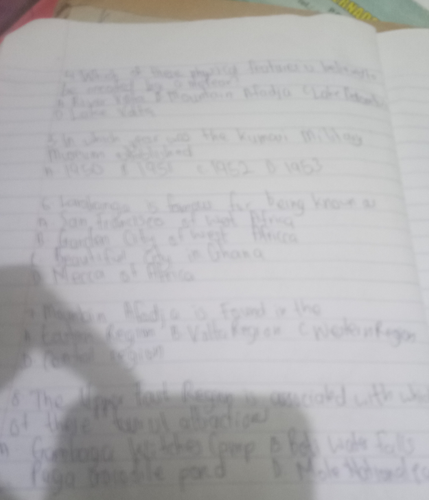 4. Which of these physical features is believed
be created by a meteor
A River Volta B Mountain Afadja C Lake
D Lake Volta
5. In which year was the Kumasi Military
Museum established
A 1950 B 1951 C 1952 D 1953
6. is famous for being known as
A San Francisco of West Africa
B Garden City of West Africa
C Beautiful City in Ghana
D Mecca of Africa
7. Mountain Afadja is found in the
A Eastern Region B Volta Region C Western Region
D Central region
8. The Upper East Region is associated with which
of these tourist attraction
A Gambaga Witches Camp B Boti Water Falls
Paga Crocodile pond D Mole National